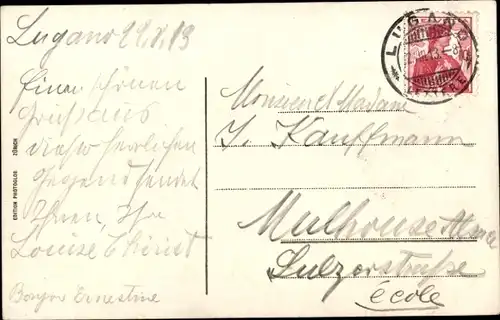 Lugano 29.X.13
Einen schönen
Gruss aus
dieser herrlichen
Gegend sendet
Ihnen, Ihre
Louise Christ
Bonjor Ernestine
EDITION PHOTOGLOB ZÜRICH
LUGANO
LETTERE
Monsieur et Madame
J. Kauffmann
Mulhouse Alsace
Sulzerstraße
école